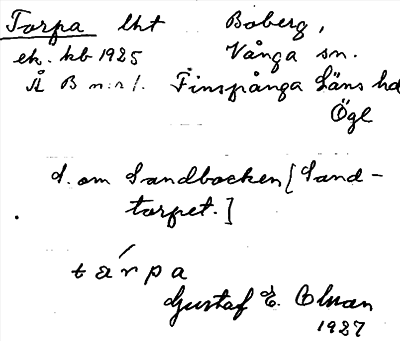 Torpa lht Boberg,
ek. kb 1925 Vånga sn.
Å B n:r 1. Finspånga läns hd
Ögl
S. om Sandbacken [Sand-
torpet.]
tárpa
Gustaf E. Olsson
1927